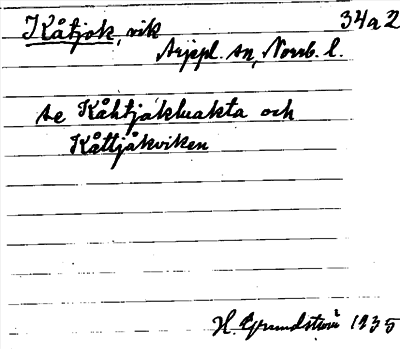 Kåtjok, vik 34a2
Arjepl. sn, Norrb. l.
se Kåhtjåkluakta och
Kåttjåkviken
H. Grundström 1935